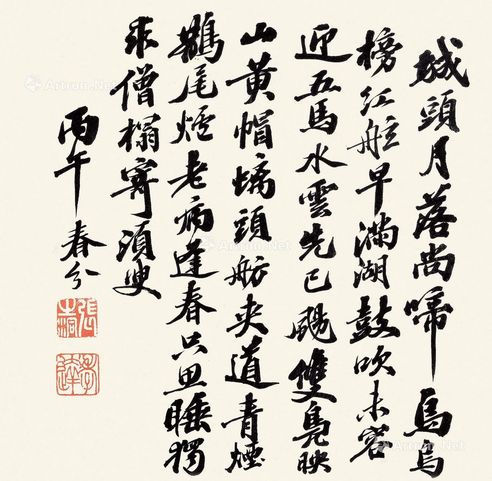 城頭月落尚啼烏烏
榜紅舷早滿湖鼓吹未容
迎五馬水雲先已颺雙鳧映
山黃帽螭頭舫夾道青煙
鵲尾爐老病逢春只思睡獨
求僧榻寄須臾
丙午春分
張之洞
孝達
Artron.Net